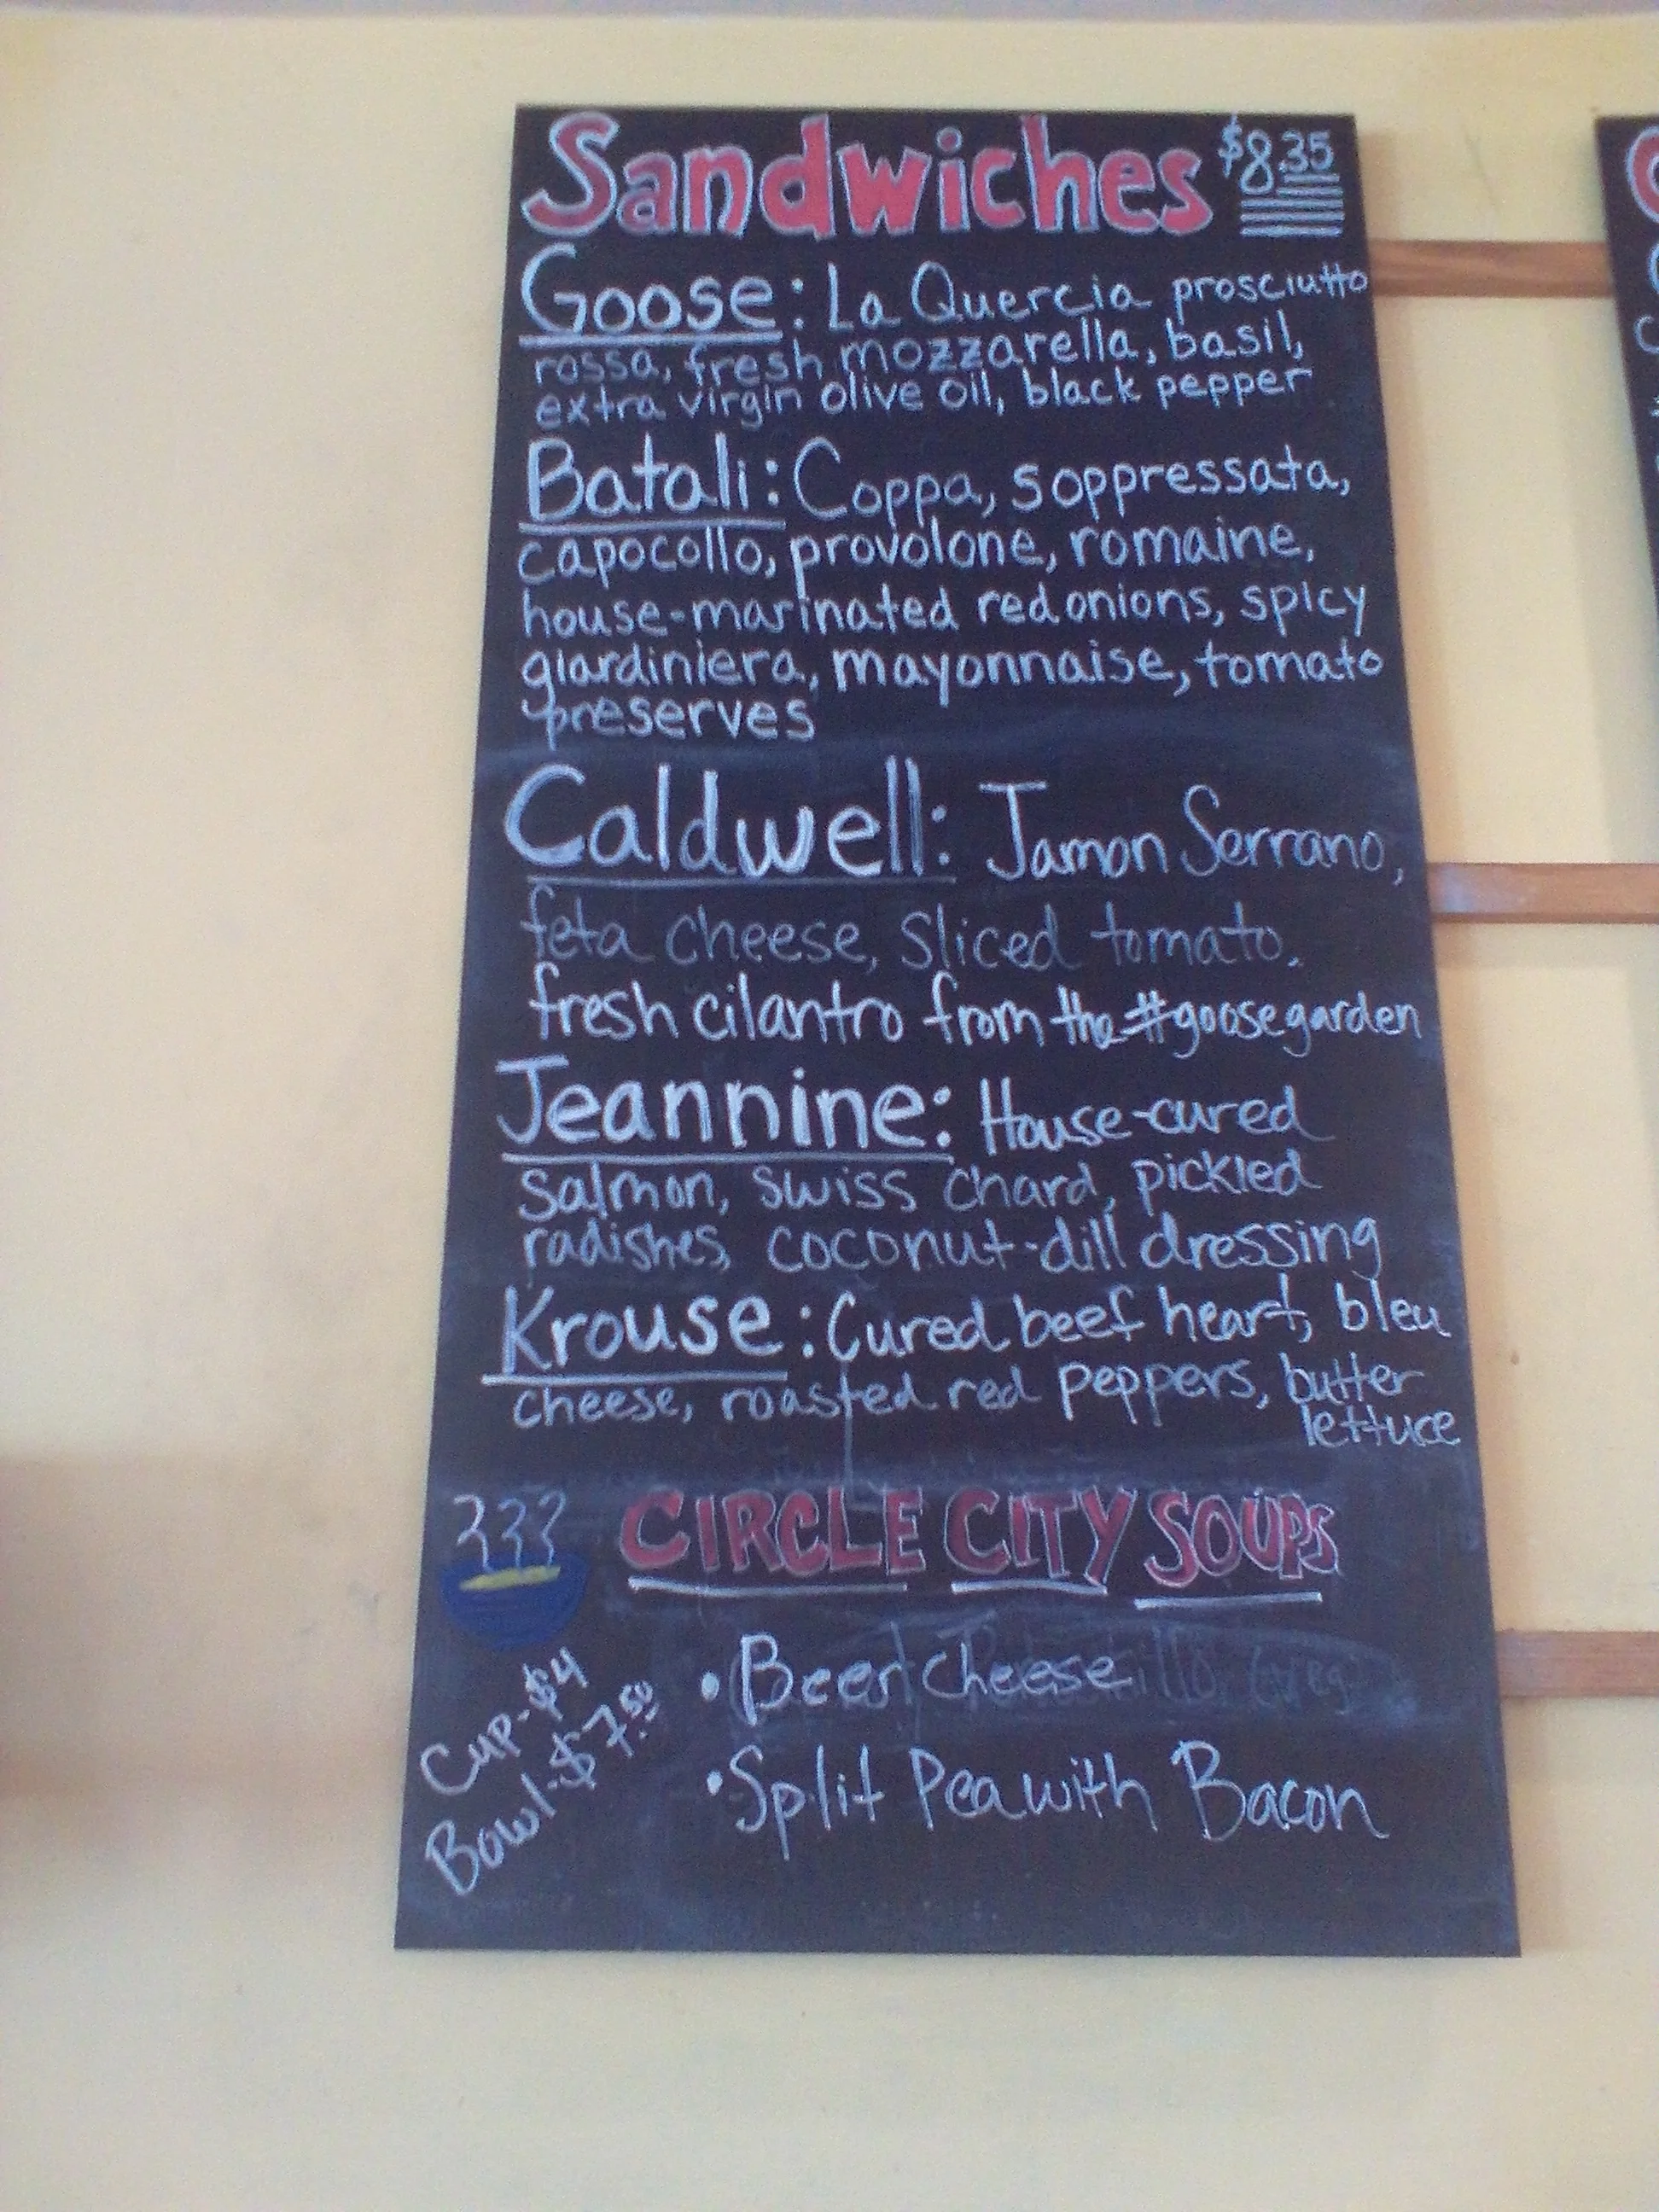 Sandwiches $8.35
Goose: La Quercia prosciutto
rossa, fresh mozzarella, basil,
extra virgin olive oil, black pepper
Batali: Coppa, soppressata,
capocollo, provolone, romaine,
house-marinated red onions, spicy
giardiniera, mayonnaise, tomato
preserves
Caldwell: Jamon Serrano,
feta cheese, sliced tomato,
fresh cilantro from the #goosegarden
Jeannine: House-cured
salmon, swiss chard, pickled
radishes, coconut-dill dressing
Krouse: Cured beef heart, bleu
cheese, roasted red peppers, butter
lettuce
CIRCLE CITY SOUPS
Cup-$4
Bowl-$7.50
• Beer Cheese
• Split Pea with Bacon